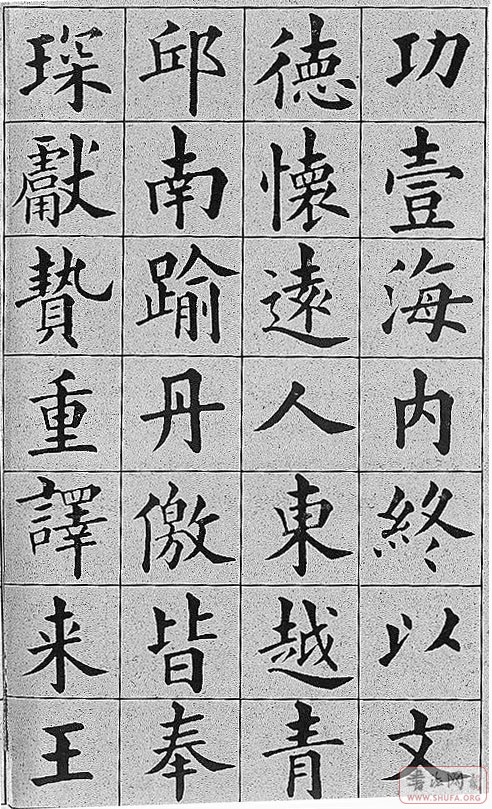 功壹海内終以文
徳懷遠人東越青
邱南踰丹儌皆奉
琛獻贄重譯来王
WWW.SHUFA.ORG